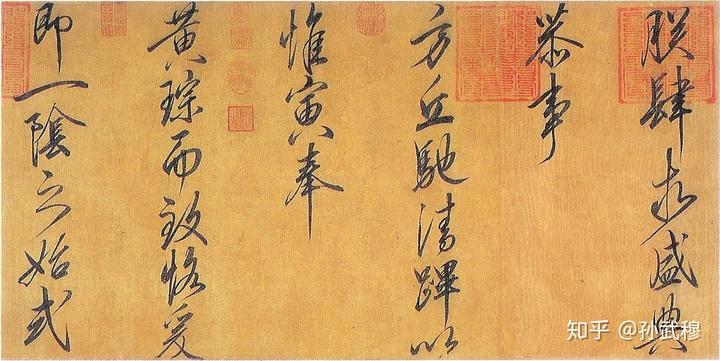 朕肆求盛典
恭事
方丘馳清蹕以
惟寅奉
黃琮而致恪爰
即一陰之始式
知乎 @孙武穆